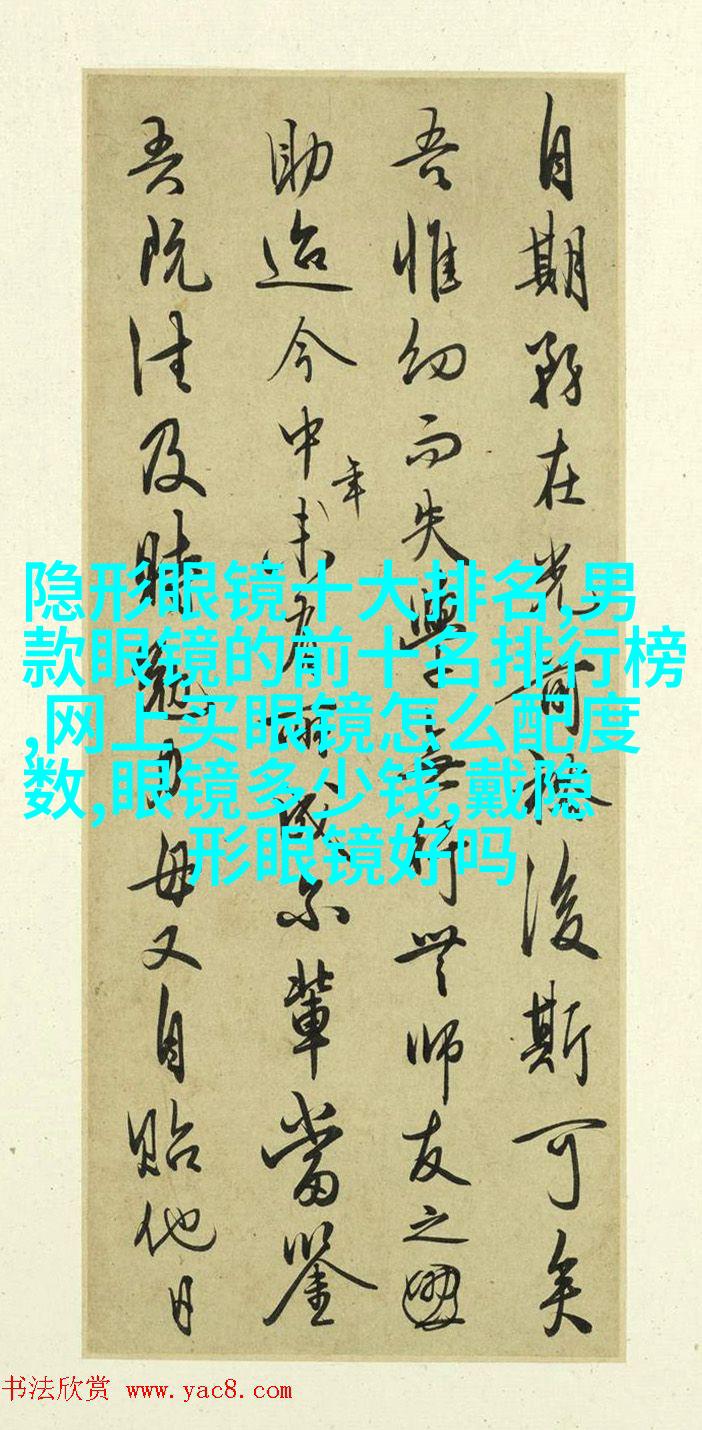 自期務在光前裕後斯可矣
吾惟幼而失學無行無師友之
助迨今中年未有所成尔輩當鑒
吾既往及時勉力毋又自貽他日
隐形眼镜十大排名,男
款眼镜的前十名排行榜
,网上买眼镜怎么配度
数,眼镜多少钱,戴隐
形眼镜好吗
书法欣赏 www.yac8.com